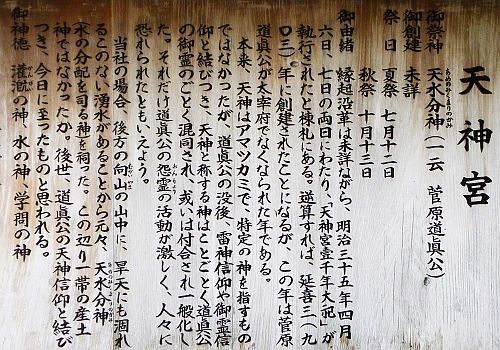 天神宮
御祭神 天水分神(一云 菅原道眞公)
御創建 未詳
祭日 夏祭 七月十二日
秋祭 十月十三日
御由緒 縁起沿革は未詳ながら、明治三十五年四月
六日、七日の両日にわたり、天神宮壹千年大祀」が
執行されたと棟札にある。逆算すれば、延喜三(九
〇三)年に創建されたことになるが、この年は菅原
道眞公が太宰府でなくなられた年である。
本来、天神はアマツカミで、特定の神を指すもの
ではなかったが、道眞公の没後、雷神信仰や御霊信
仰と結びつき、天神と称する神はことごとく道眞公
の御霊のごとく混同され、或いは付会され一般化し
た。それだけ道眞公の怨霊の活動が激しく、人々に
恐れられたともいえよう。
当社の場合、後方の向山の山中に、旱天にも涸れ
るこのない湧水があることから元々、天水分神
(水の分配を司る神を祠った。この辺り一帯の産土
神ではなかったか。後世、道眞公の天神信仰と結び
つき、今日に至ったものと思われる。
御神徳 灌漑の神、水の神、学問の神